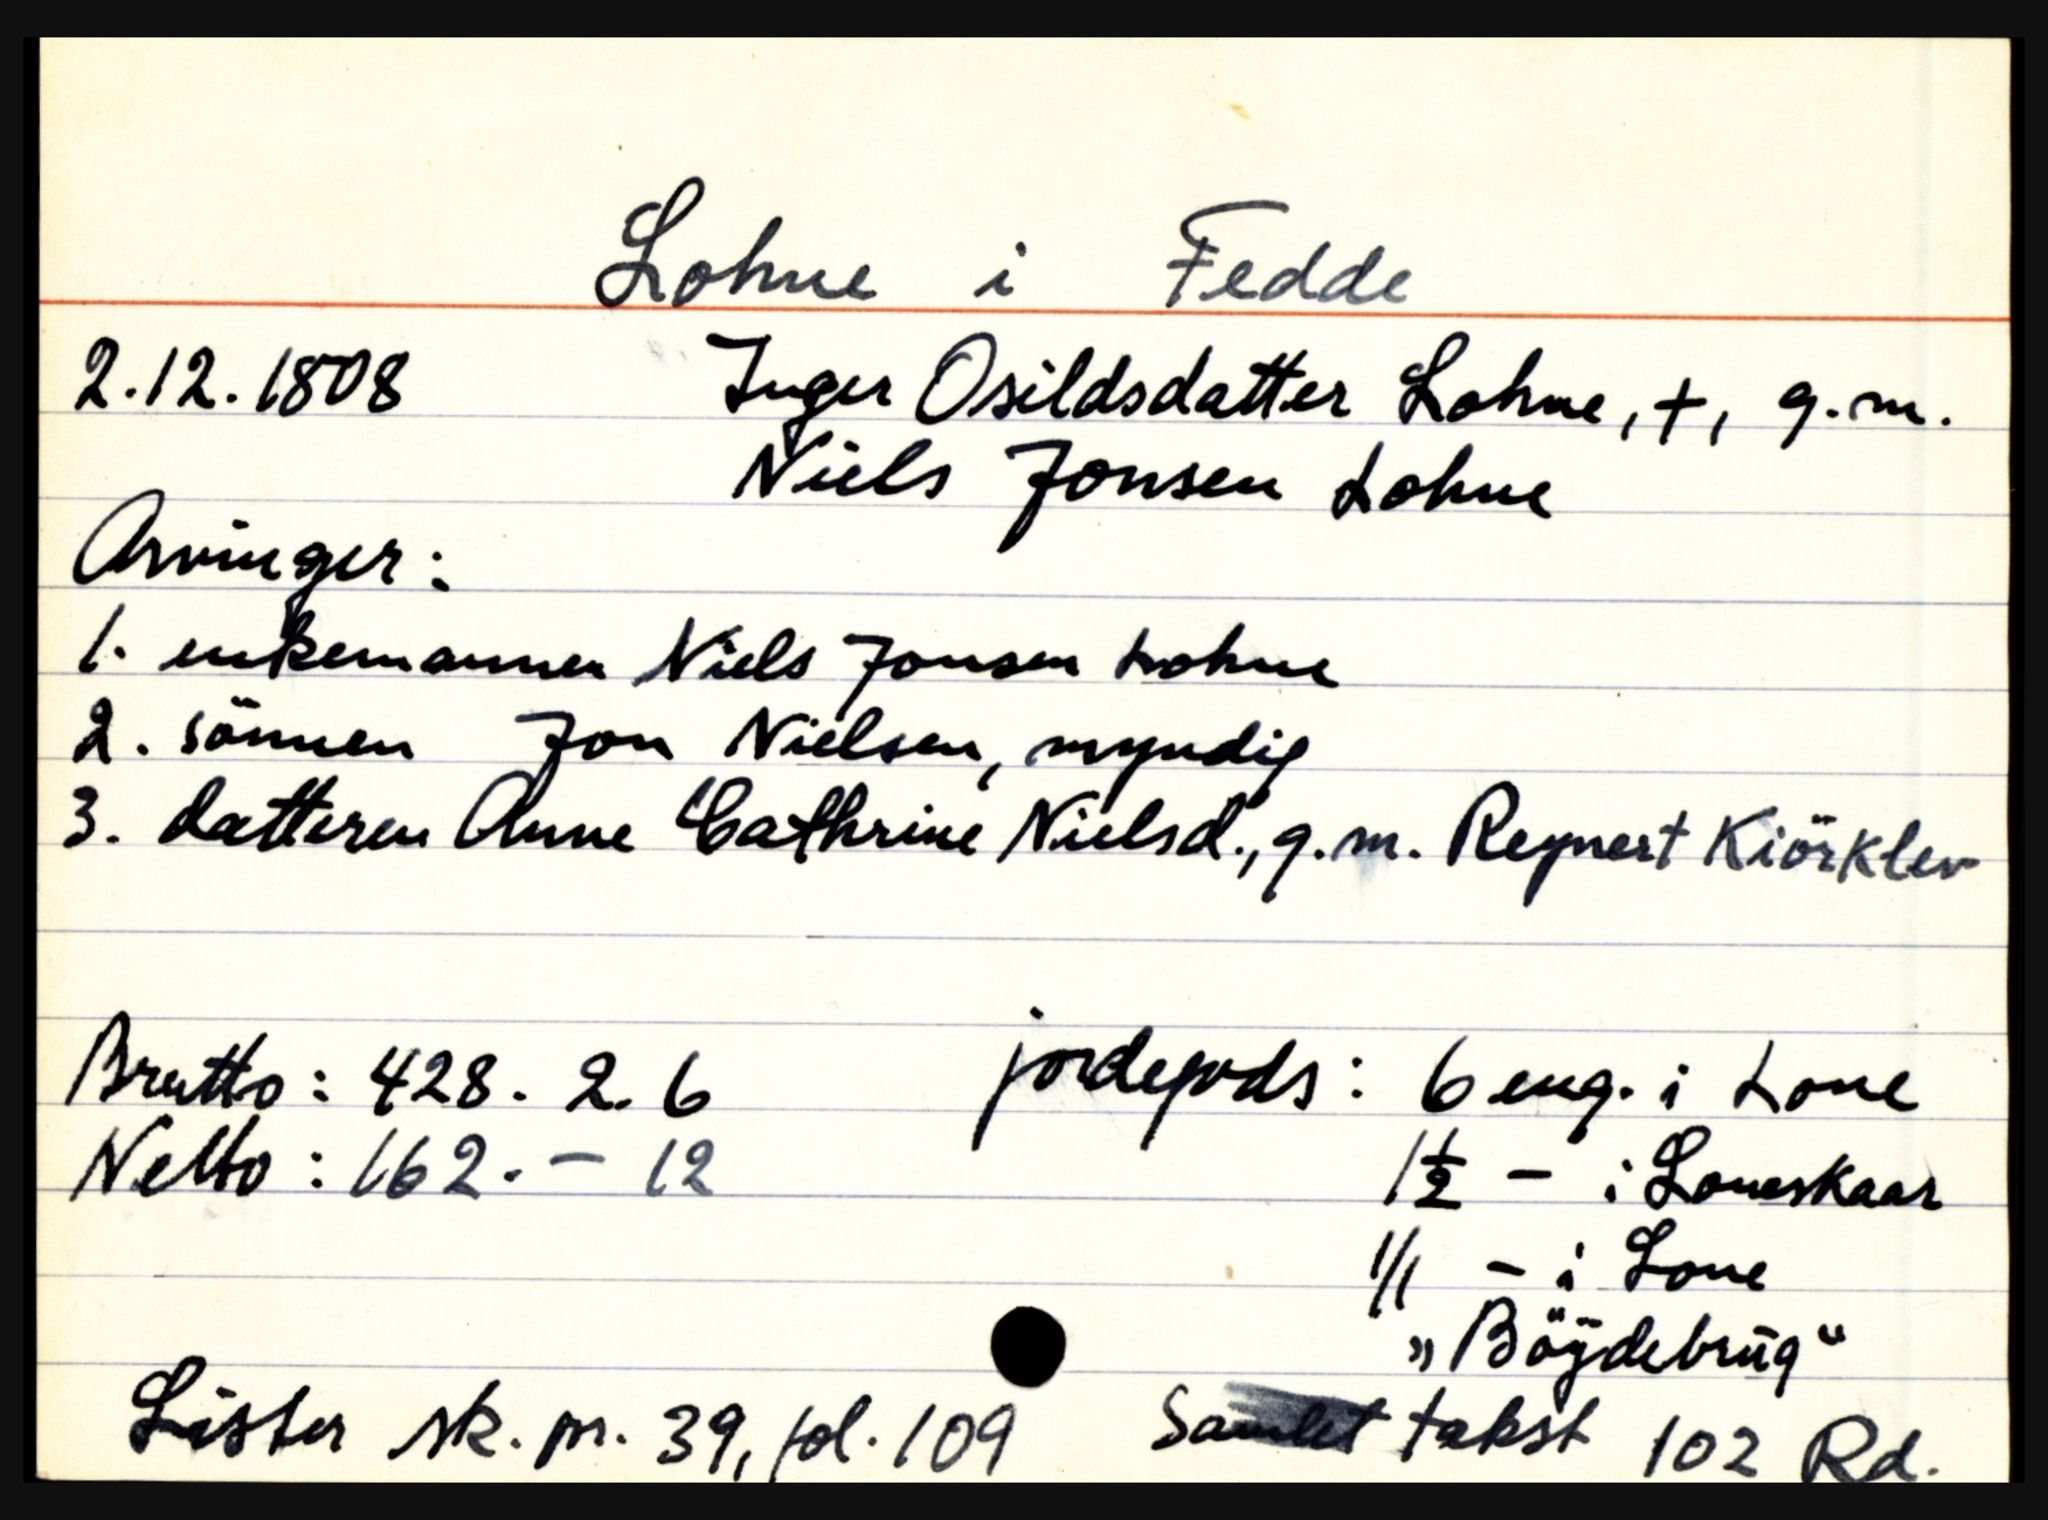 Lohne i Fedde
2.12.1808 Inger Osildsdatter Lohne, †, g.m.
Niels Jonsen Lohne
Arvinger:
1. enkemannen Niels Jonsen Lohne
2. sönnen Jon Nielsen, myndig
3. datteren Anne Cathrine Nielsd., g.m. Reynert Kiörklev
Brutto: 428. 2. 6 jordegods: 6 eng. i Lone
Netto: 162. - 12 1½ - i Loneskaar
1/1 - i Lone
„Böÿdebrŭg“
Lister sk. pr. 39, fol. 109 Samlet takst 102 Rd.